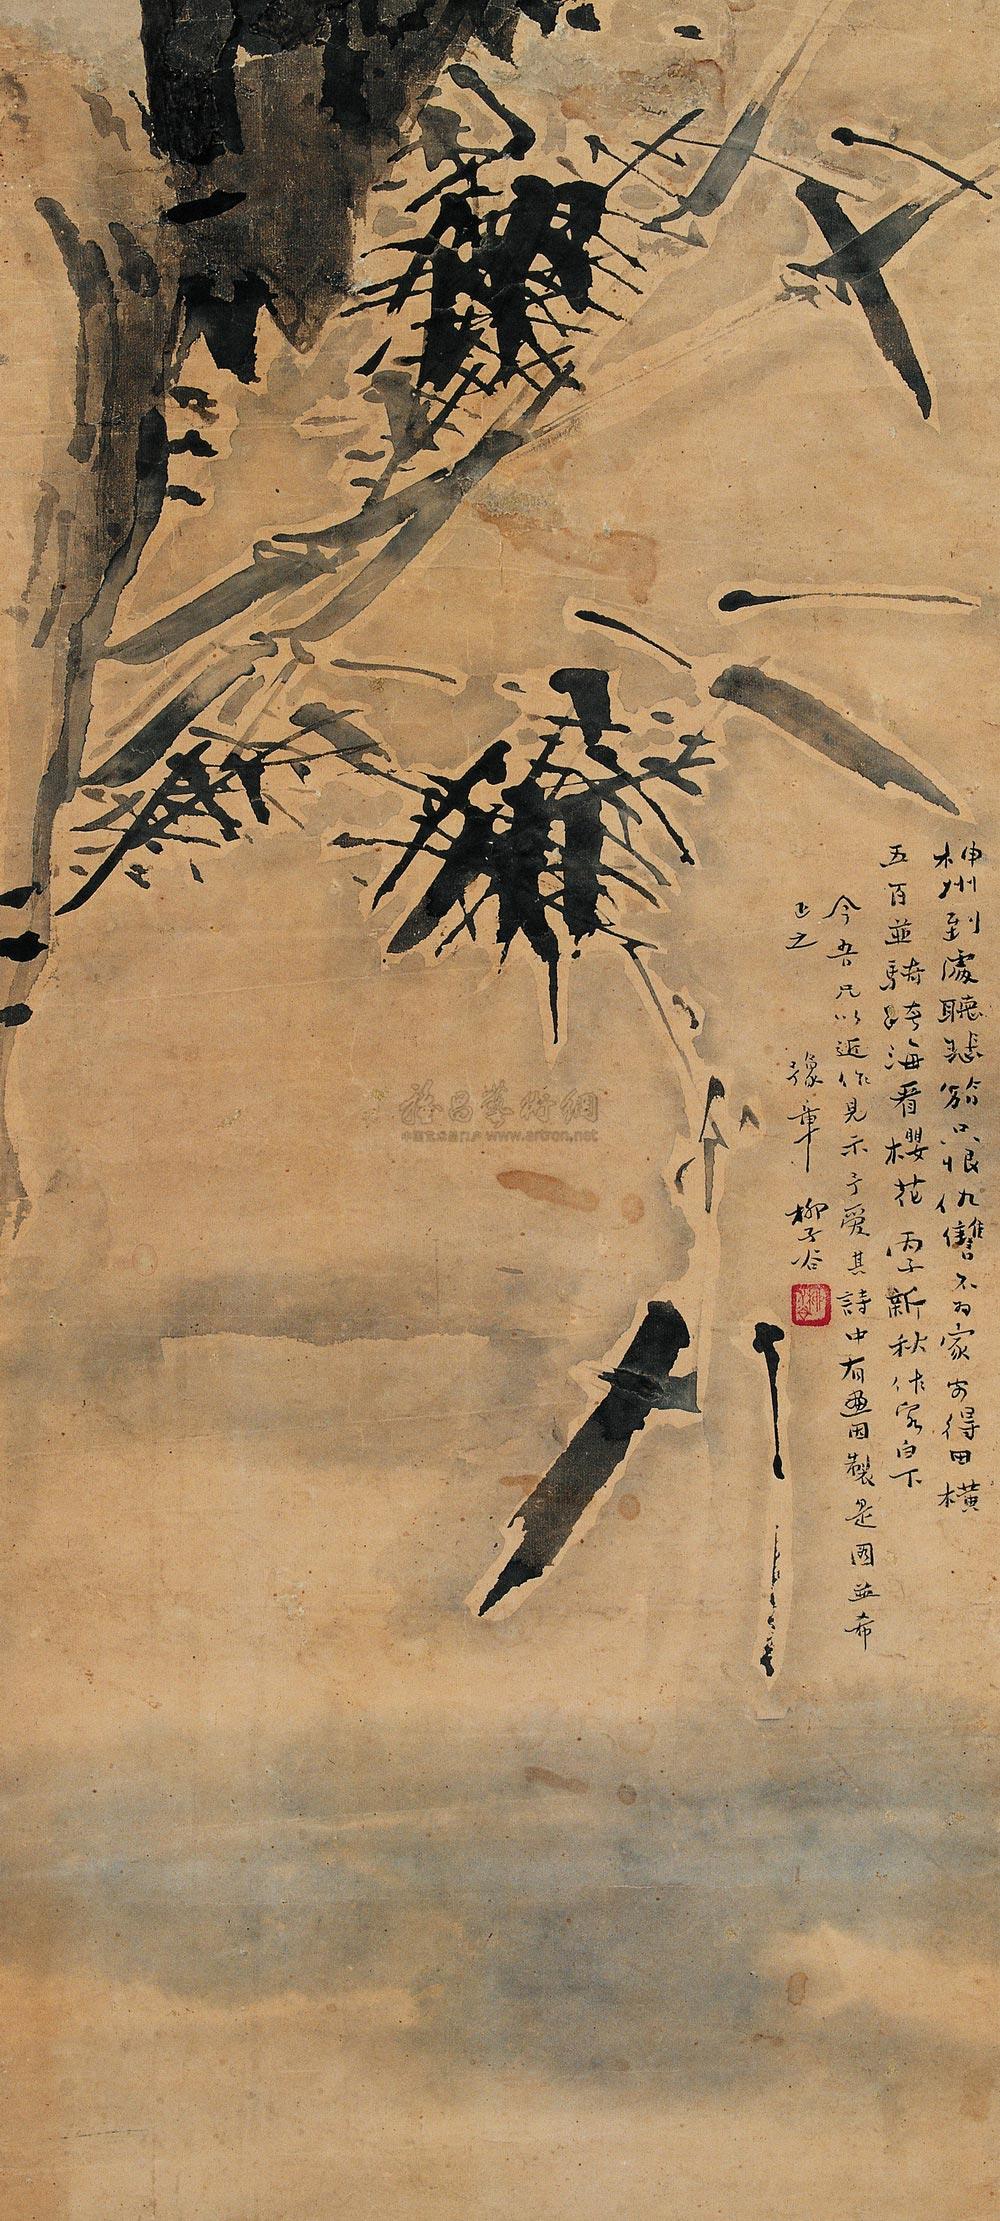 神州到處聽悲笳只恨仇讐不為家安得田橫
五百並騎跨海看櫻花 丙子新秋作客白下
今吾兄以近作見示予愛其詩中有畫因製是圖並希
正之 豫章 柳子谷
雅昌藝術網
中国艺术品门户 www.artron.net